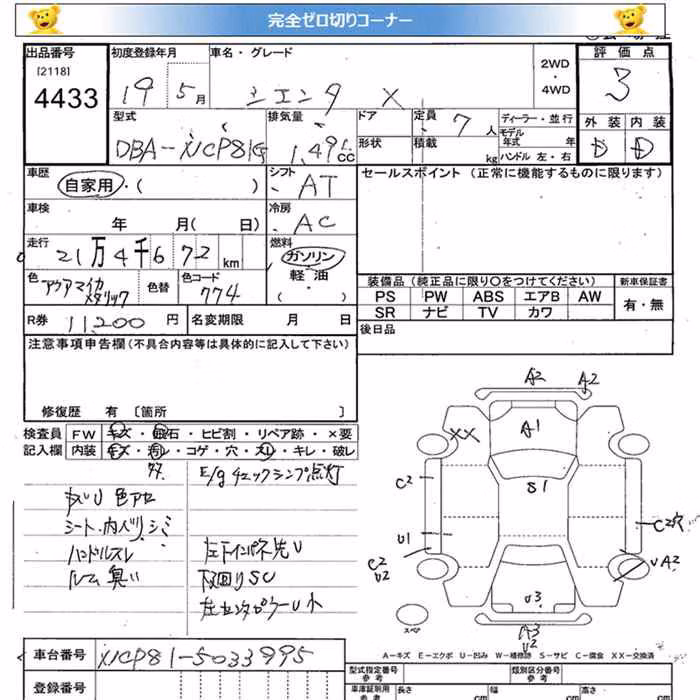 完全ゼロ切りコーナー
出品番号 初度登録年月 車名・グレード 2WD・4WD 評価点
[2118]
4433 19 5月 シエンタ X 3
型式 排気量 ドア 定員 7人 ディーラー・並行 外装 内装
モデル年式 年
DBA-NCP81G 1.49L CC 形状 積載 kg ハンドル 左・右 D D
車歴 シフト セールスポイント (正常に機能するものに限ります)
自家用・( ) AT
車検 冷房
年 月(日) AC
走行 燃料
21万4千672 km ガソリン
色 色替 色コード 軽・油
アクアマイカメタリック 774 (・)
装備品 (純正品に限り〇をつけてください) 新車保証書
PS PW ABS エアB AW 有・無
SR ナビ TV カワ
R券 11,200円 名変期限 月 日 後日品
注意事項申告欄 (不具合内容等は具体的に記入して下さい)
修復歴 有 〔箇所 〕
検査員 FW キズ・飛石・ヒビ割・リペア跡・×要
記入欄 内装 キズ・汚レ・コゲ・穴・スレ・キレ・破レ
E/gチェックランプ点灯
キズU 色アセ
シート・内ハリシミ
ハンドルスレ
ルーム臭い
左下インパネ先U
下回りSU
A2 A2
A1
XX
S1
C2 C2穴
U1
C2 U2 UA2
U3
スペア A3 U2
A-キズ E-エクボ U-凹み W-補修跡 S-サビ C-腐食 XX-交換済
車台番号 NCP81-5033995
登録番号
型式指定番号 参考 類別区分番号 参考
車庫証明用 参考 長さ cm 幅 cm 高さ cm